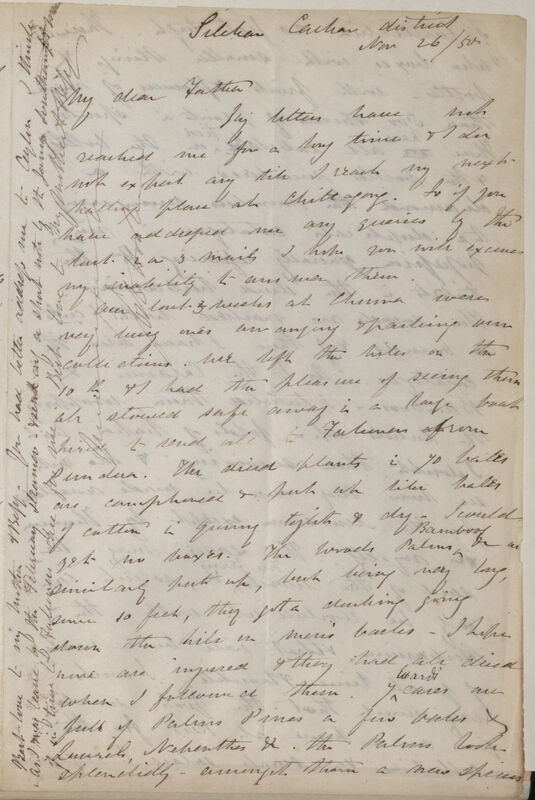 Silchar Cachar district
Nov 26/50
My dear Father
My letters have not
reached me for a long time & I do
not expect any till I reach my next
halting place at Chittagong. So if you
have addressed me any queries by the
last 2 or 3 mails I hope you will excuse
my inability to answer them.
Our last weeks at Churra were
very busy ones arranging & packing our
collections. We left the hills on the
10th & I had the pleasure of seeing them
all stowed safe away in a large boat
hired to send all to Falconer from
Pundua. The dried plants in 70 bales
are camphored & put up like bales
of cotton in gunny tight & dry. I could
get no boxes. The woods Palms Bamboos &c are
similarly put up, but being very long,
some 10 feet, they got a drubbing going
down the hill on men's backs - I hope
none are injured & they had all dried
when I followed them. 7 Ward's cases are
full of Palms Pines a few Oaks &
Laurels, Nepenthes &c. the Palms look
splendidly amongst them a new species
Best love to my mother & Bessy. You had better address me to Ceylon I think
as I may leave by the February steamer & send only a short note by St James Southampton